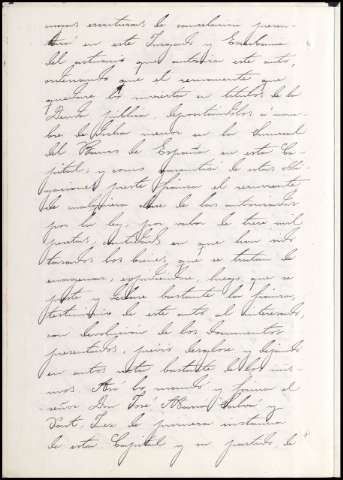 cuyas escrituras de cancelacion presen-
tará en este Juzgado y Escribania
del actuario que autoriza este auto,
ordenando que el remanente que
quedare lo invierta en titulos de la
Deuda publica, depositandolos á nom-
bre de dicha menor en la Sucursal
del Banco de España, en esta Ca-
pital; y como garantia de estas obli-
gaciones preste fianza el recurrente
de cualquiera clase de las autorizadas
por la ley, por valor de trece mil
pesetas, cantidad en que han sido
tasados los bienes, que se tratan de
enagenar, expidiendose, luego, que se
preste y declare bastante la fianza,
testimonio de este auto al interesado,
con devolucion de los documentos
presentados, previo desglose y dejando
en autos nota bastante de los mis-
mos. Asi lo mandó y firma el
señor Don José Salvá y
Juez de primera instancia
de esta Capital y su partido, de